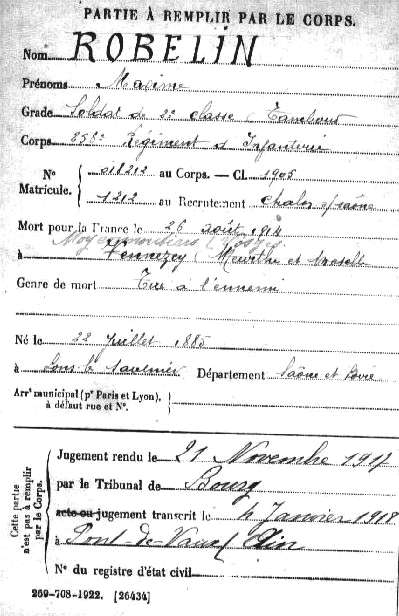 PARTIE À REMPLIR PAR LE CORPS.
Nom ROBELIN
Prénoms Maxime
Grade Soldat de 2e classe (Tambour
Corps Régiment d'Infanterie
Nº Matricule. 018212 au Corps. — Cl. 1905
1212 au Recrutement Chalon s/saône
Mort pour la France le 26 août 1914
Moyenmoutiers (Vosges)
à Vennezey (Meurthe et Moselle
Genre de mort Tué a l'ennemi
Né le 22 Juillet 1885
à Lons le Saulnier Département Saône et Loire
Arrt municipal (pr Paris et Lyon),
à défaut rue et Nº.
Cette partie n'est pas à remplir par le Corps.
Jugement rendu le 21 Novembre 1917
par le Tribunal de Bourg
acte ou jugement transcrit le 4 Janvier 1918
à Pont-de-Vaux (Ain
Nº du registre d'état civil
269-708-1922. [26434]